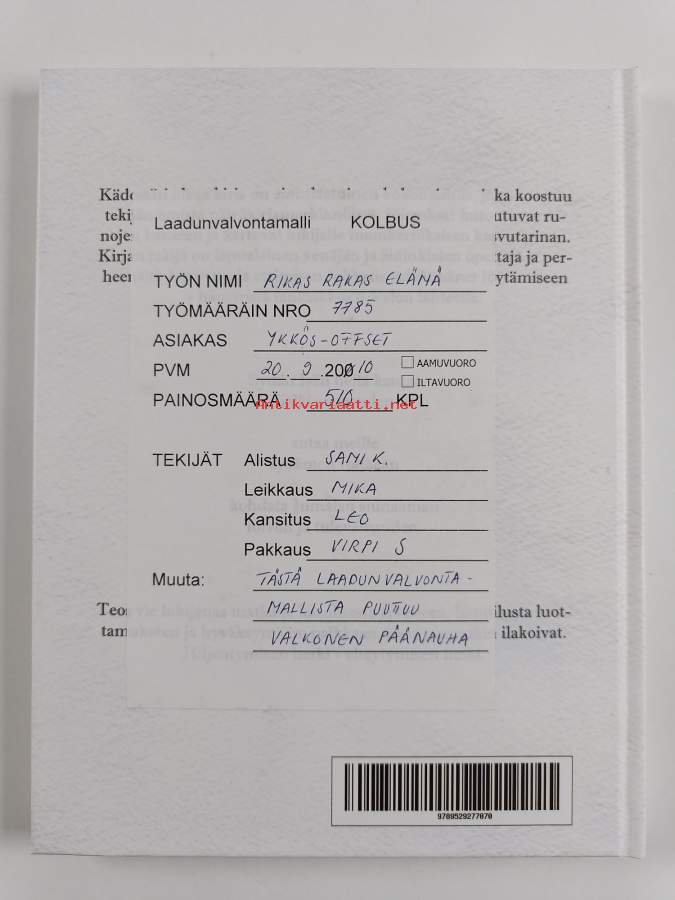 Käde ka koostuu
teki utuvat ru-
noje svutarinan.
Kirja ttaja ja per-
heen ytämiseen
Laadunvalvontamalli KOLBUS
TYÖN NIMI RIKAS RAKAS ELÄMÄ
TYÖMÄÄRÄIN NRO 7785
ASIAKAS YKKÖS-OFFSET
PVM 20.9.2010 AAMUVUORO
ILTAVUORO
PAINOSMÄÄRÄ 510 KPL
Antikvariaatti.net
TEKIJÄT Alistus SAMI K.
Leikkaus MIKA
Kansitus LEO
Pakkaus VIRPI S
Muuta: TÄSTÄ LAADUNVALVONTA-
MALLISTA PUUTTUU
VALKONEN PÄÄNAUHA
Teo ilusta luot-
tam ilakoivat.
9789529277070